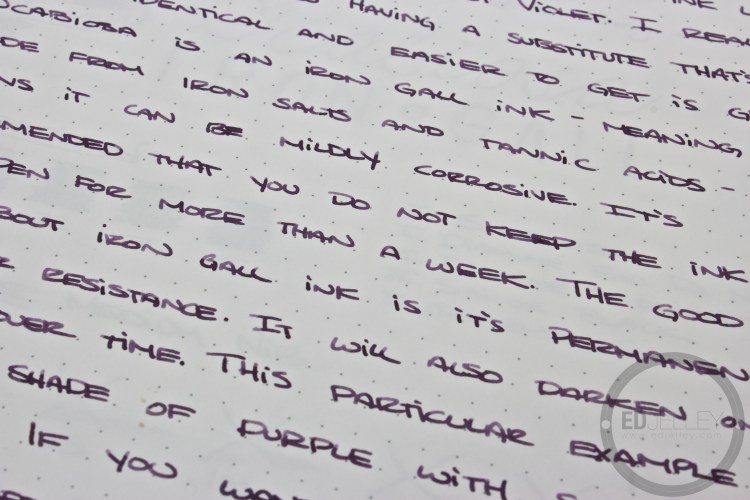 VIOLET. I REA
DENTICAL AND HAVING A SUBSTITUTE THAT'S
IS AN IRON GALL INK - MEANING
DE FROM IRON SALTS AND TANNIC ACIDS -
IT CAN BE MILDLY CORROSIVE. IT'S
MMENDED THAT YOU DO NOT KEEP THE INK
PEN FOR MORE THAN A WEEK. THE GOOD
BOUT IRON GALL INK IS IT'S PERMANEN
R RESISTANCE. IT WILL ALSO DARKEN ON
OVER TIME. THIS PARTICULAR EXAMPLE
SHADE OF PURPLE WITH
IF YOU WAN
EDJELLEY